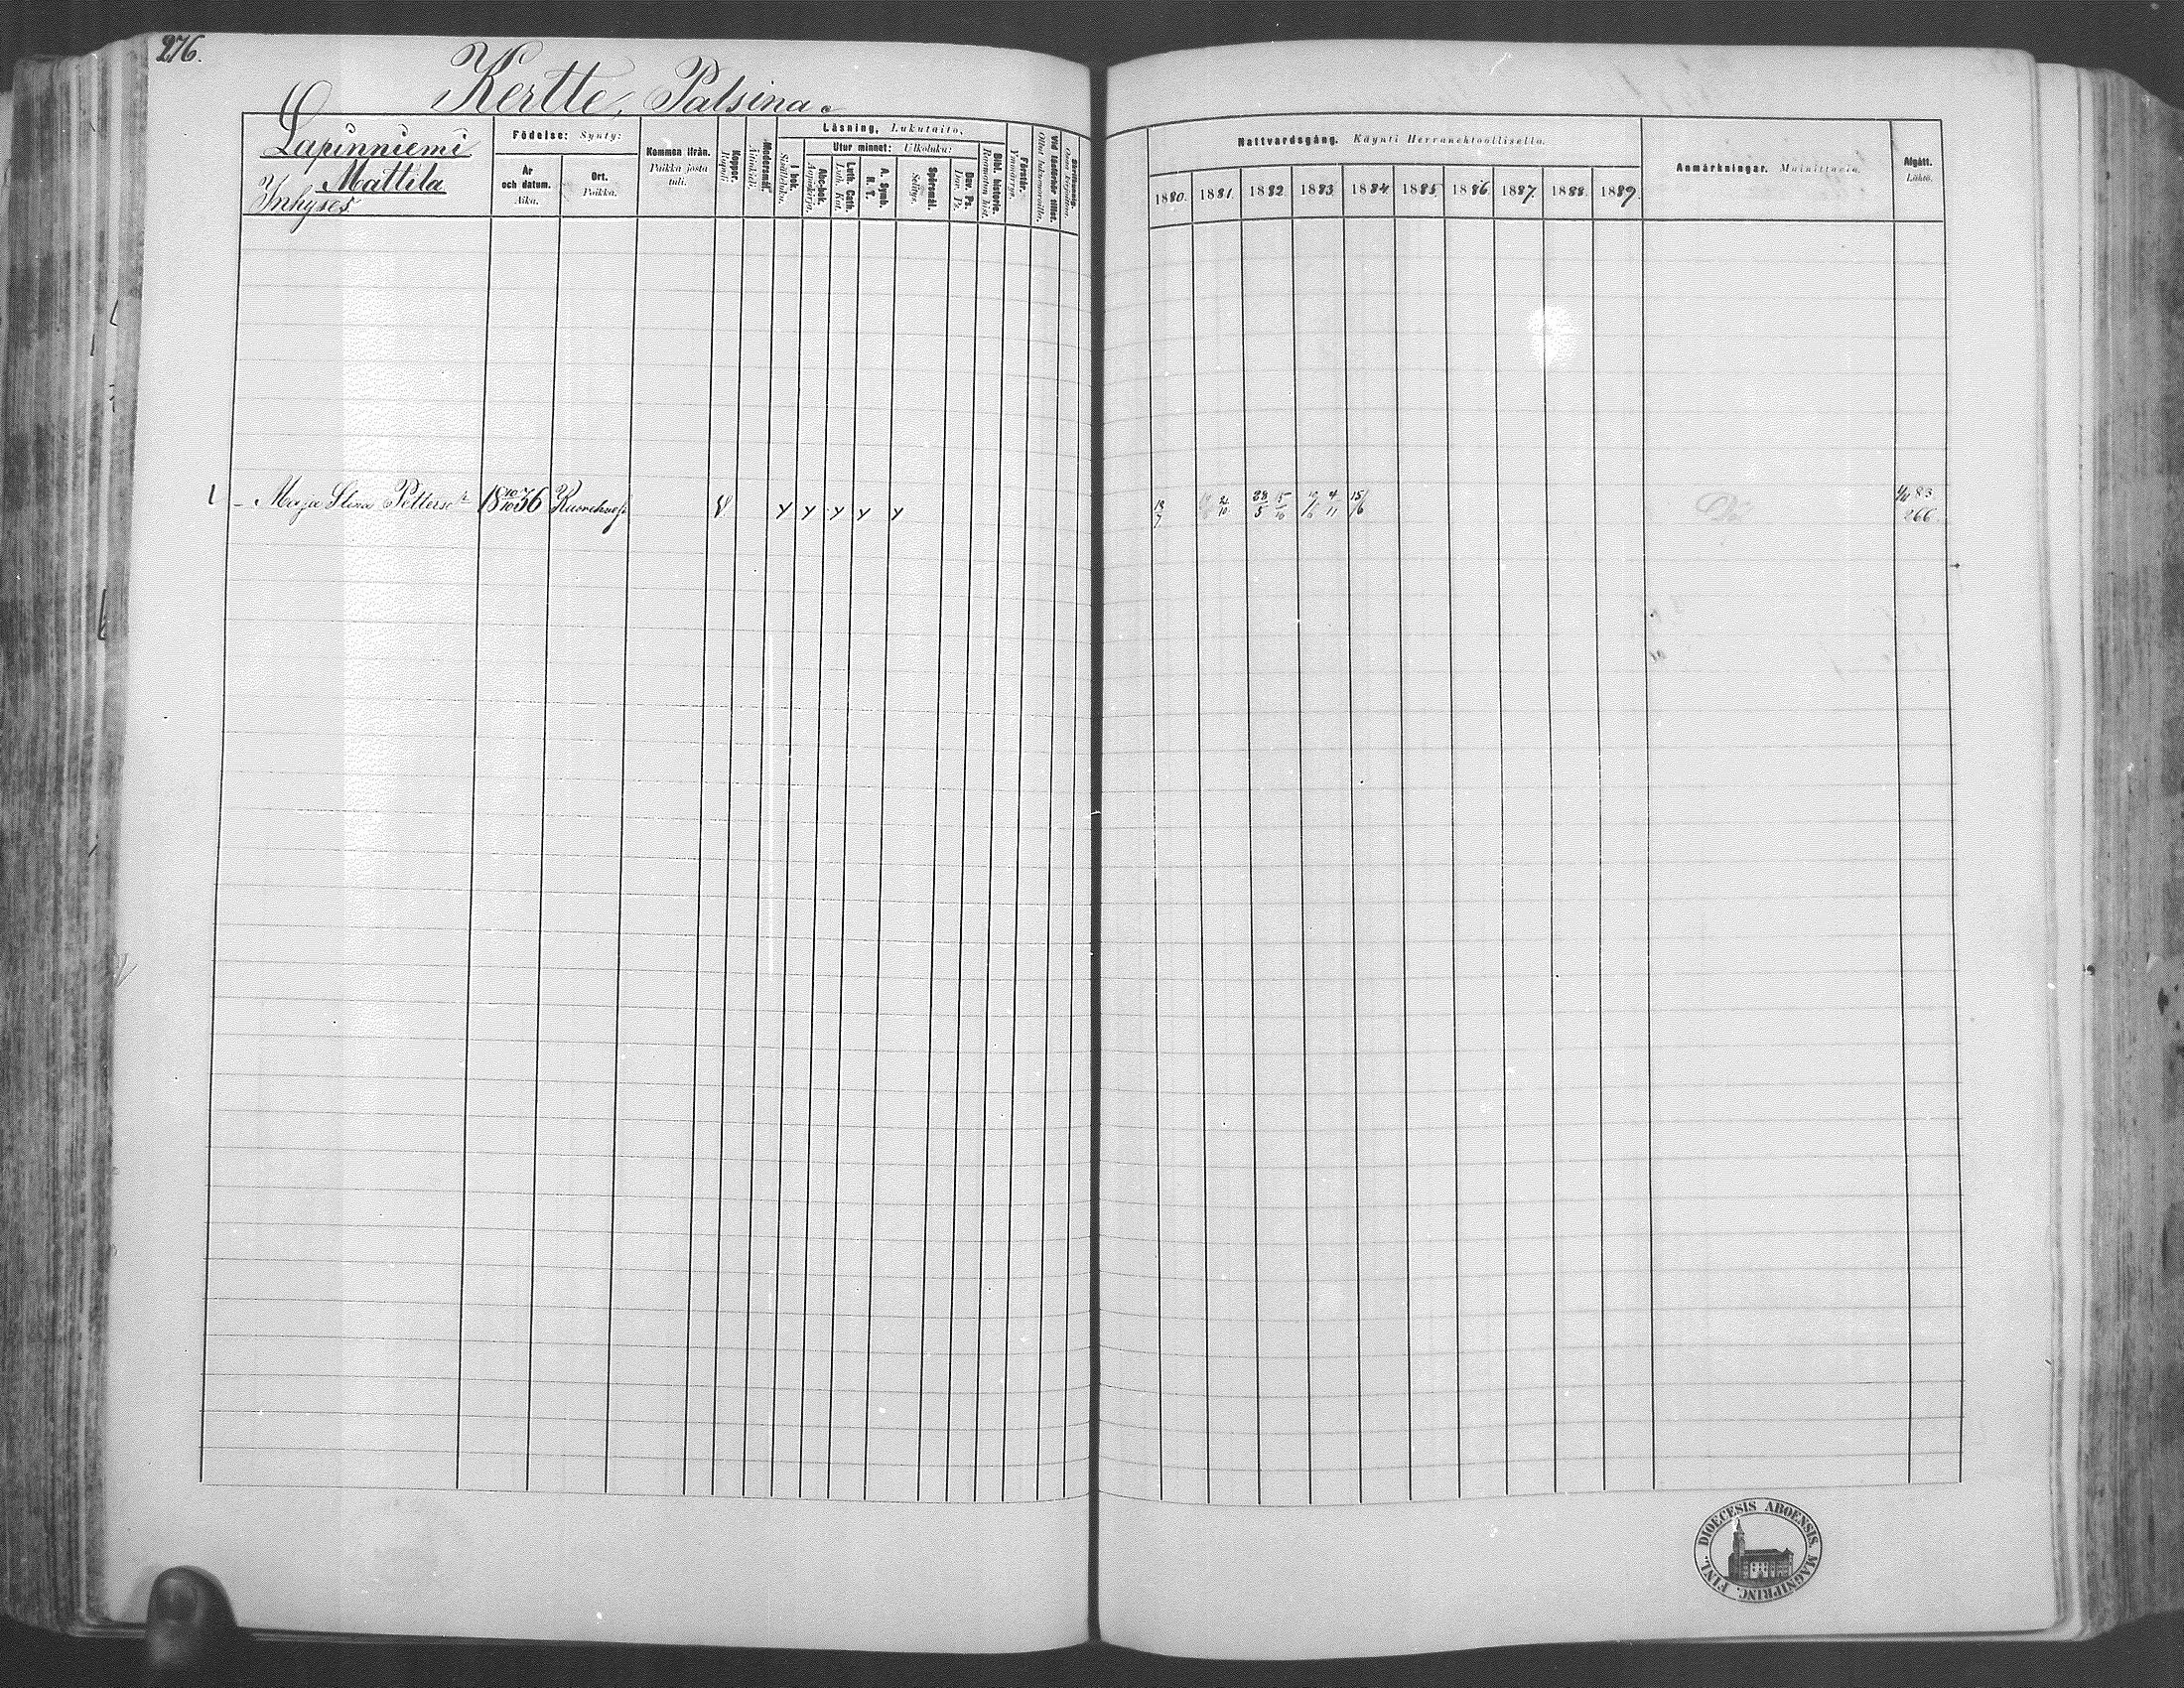 276.
Kertte, Palsina.
Lapinniemi
Mattila
Inhyses.
Födelse: Synty:
År och datum. Aika.
Ort. Paikka.
Kommen ifrån. Paikka josta tuli.
Koppor. Rupuli.
Modersmål. Äidinkieli.
Läsning, Lukutaito,
I bok. Sisältäluku.
Utur minnet: Ulkoluku:
Abc-bok. Aapiskirja.
Luth. Cath. Luth. Kat.
A. Symb. H. T.
Spörsmål. Selitys.
Dav. Ps. Dav. Ps.
Bibl. historie. Raamatun hist.
Förstår. Ymmärrys.
Vid läsförhör tillst. Ollut lukukuulusteluilla.
Nattvardsgång. Käynti Herranehtoollisella.
1880. 1881. 1882 1883 1884 1885. 1886 1887. 1888. 1889.
Anmärkningar. Muistutuksia.
Afgått. Lähtö.
1 – Maja Stina Pettersdr 18 10/10 36 v y y y y y
19/7 21/10 28/5 15/10 4/11 15/6 83
266.
DIOECESIS ABOENSIS. MAGNI PRINC. FINL.